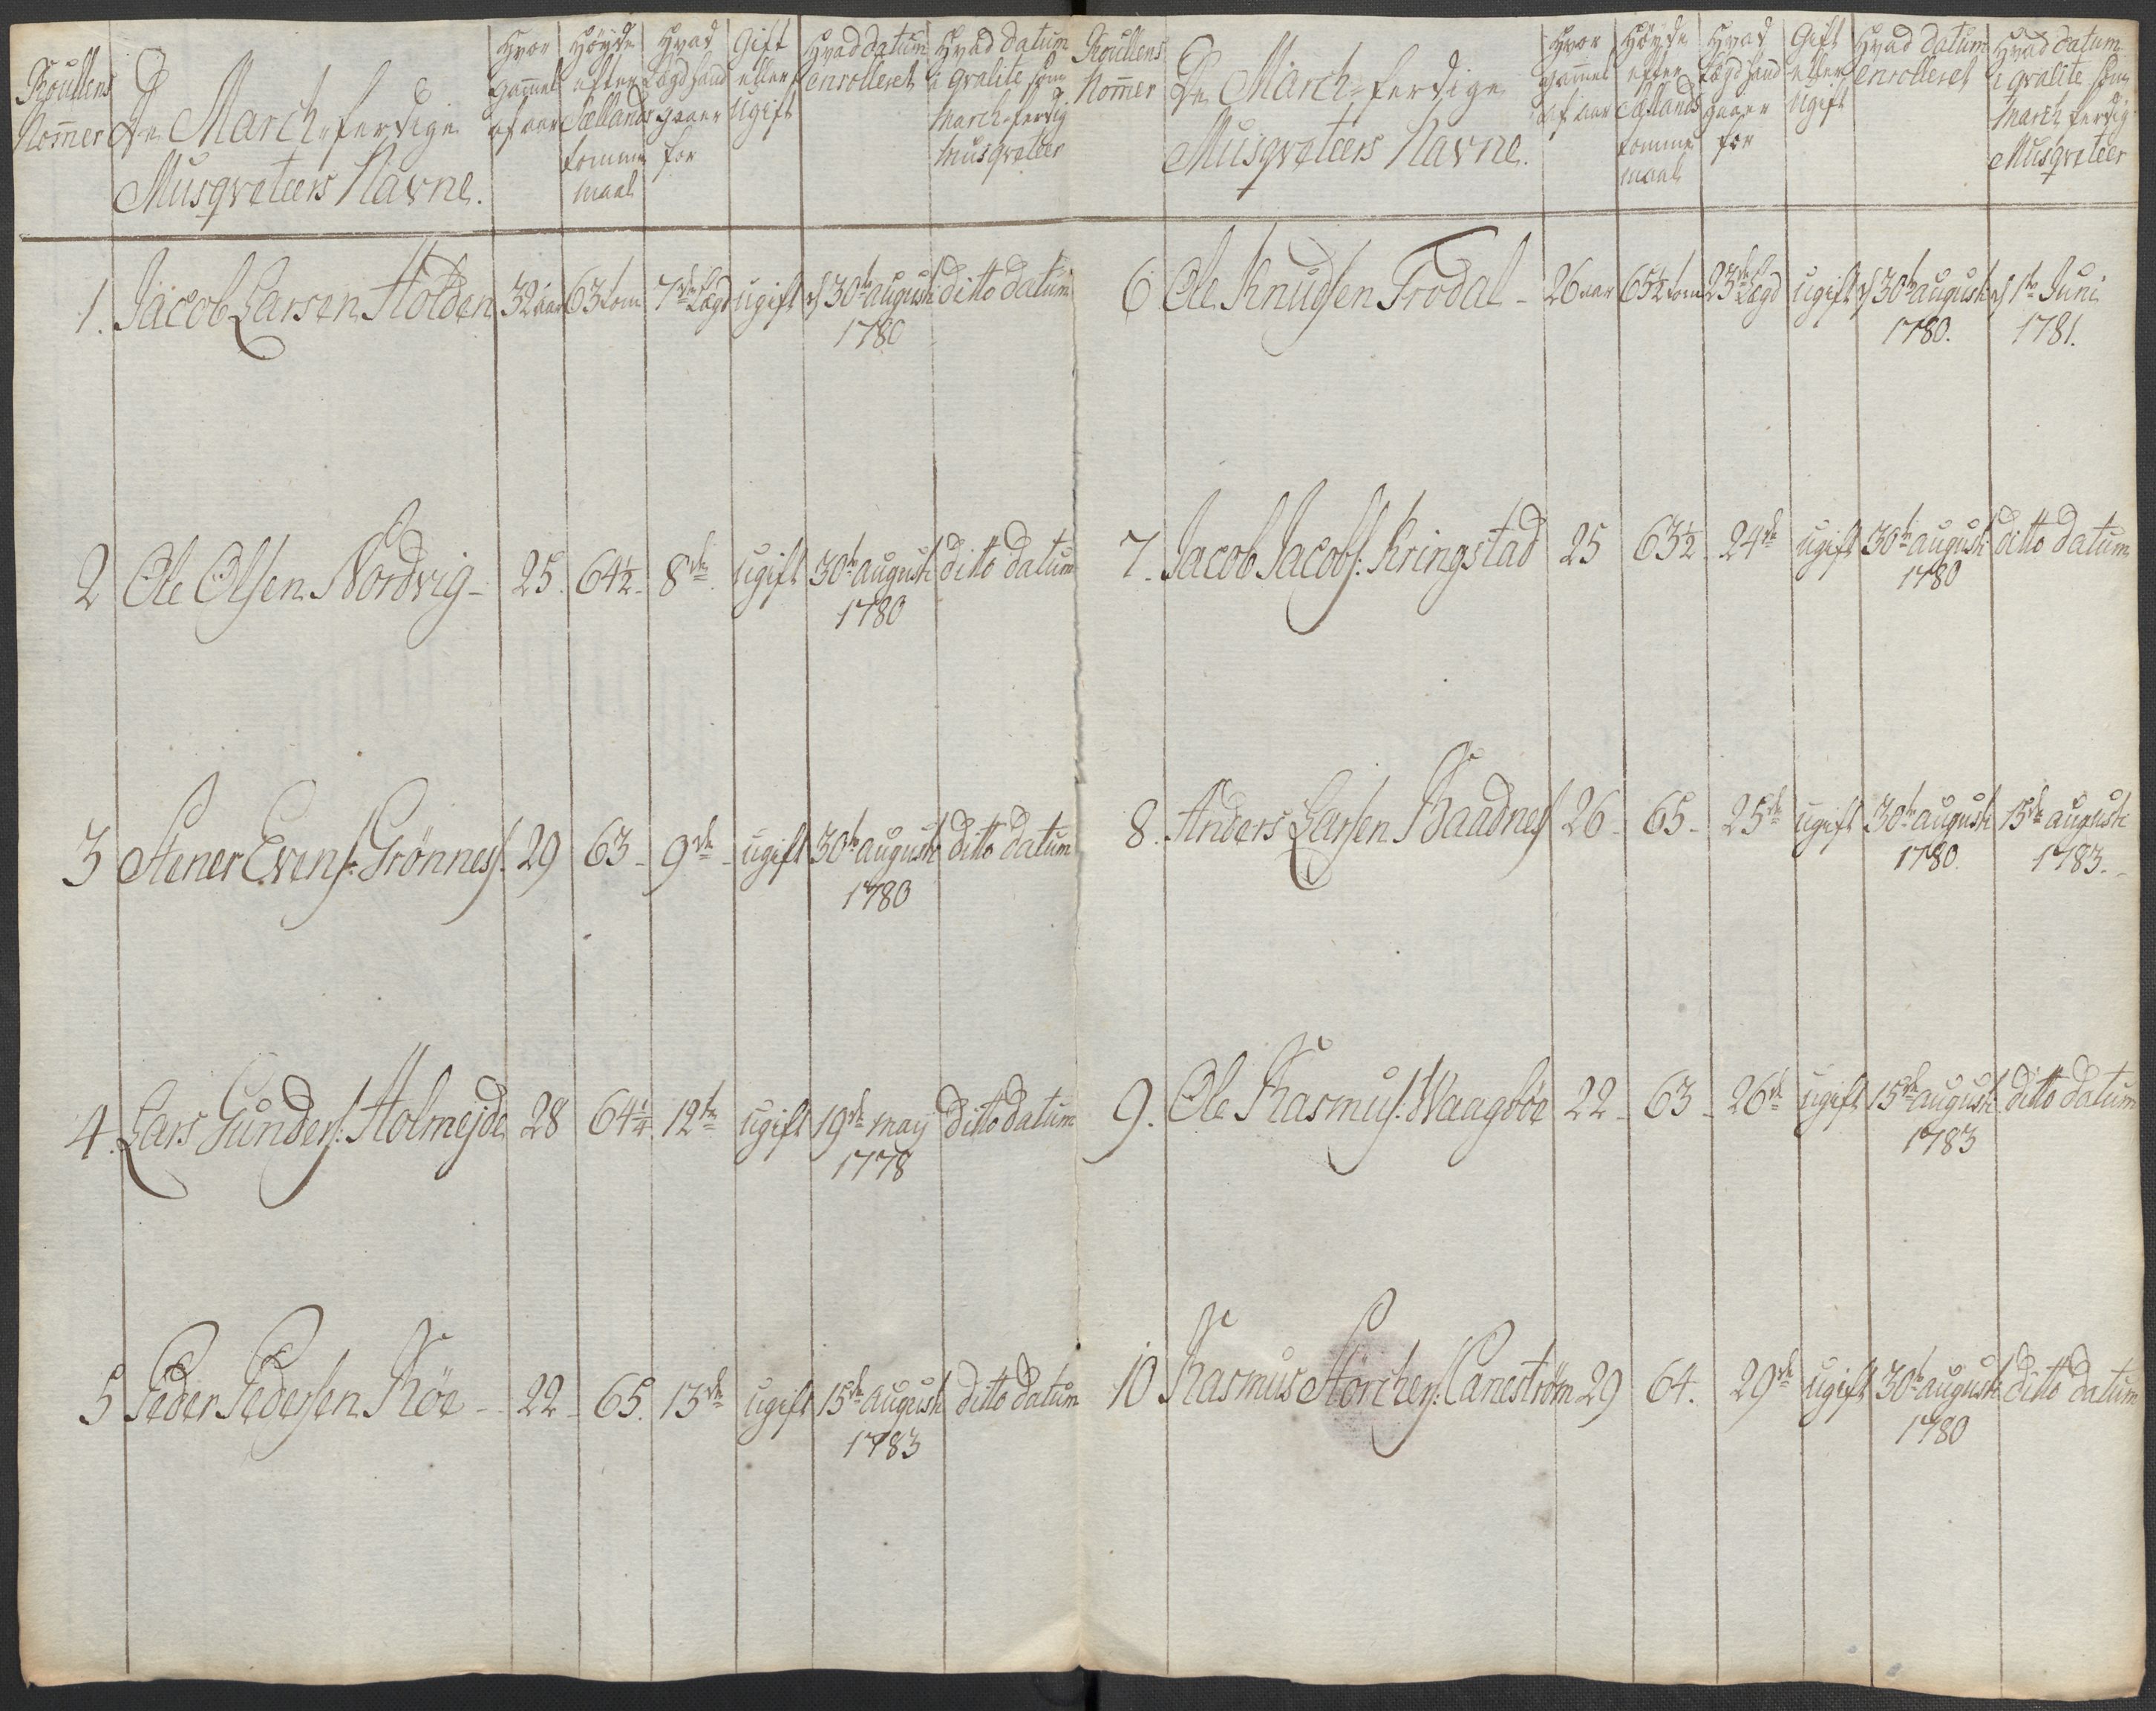 Roullens Nommer
De March-ferdige Musqveteers Navne.
Hvor gammel af aar
Høyde efter Sællands tomme maal
Hvad Lægd hand staaer for
Gift eller Ugift
Hvad datum enrolleret
Hvad datum i qvalite som March-ferdig Musqveteer
1. Jacob Larsen Holden 32 aar 63 tom 7de Lægd ugift d 30te august 1780 ditto datum
2 Ole Olsen Nordvig - 25. 64½ - 8de ugift 30te august 1780 ditto datum
3 Stener Evens: Grönnes 29 63 - 9de - ugift 30te august 1780 ditto datum
4. Lars Gunders: Holmejde 28 64¼ 12te ugift 19de may 1778 ditto datum
5 Peder Pedersen Röe - 22 - 65. 13de ugift 15de august 1783 ditto datum
Roullens Nommer
De March-ferdige Musqveteers Navne.
Hvor gammel af aar
Høyde efter Sællands tomme maal
Hvad Lægd hand staaer for
Gift eller Ugift
Hvad datum enrolleret
Hvad datum i qvalite som March ferdig Musqveteer
6 Ole Knudsen Frodal - 26 aar 65½ tom 23de Lægd ugift d 30te august 1780. d 1te Juni 1781.
7. Jacob Jacobs: Kringstad 25 63½ - 24de ugift 30te august 1780 ditto datum
8. Anders Larsen Baadnes 26 - 65 - 25de ugift 30te august 1780. 15de august 1783.
9. Ole Rasmus: Waagböe 22 - 63 - 26de ugift 15de august 1783 ditto datum
10 Rasmus Störchers: Caneström 29 64. 29de ugift 30te august 1780 ditto datum